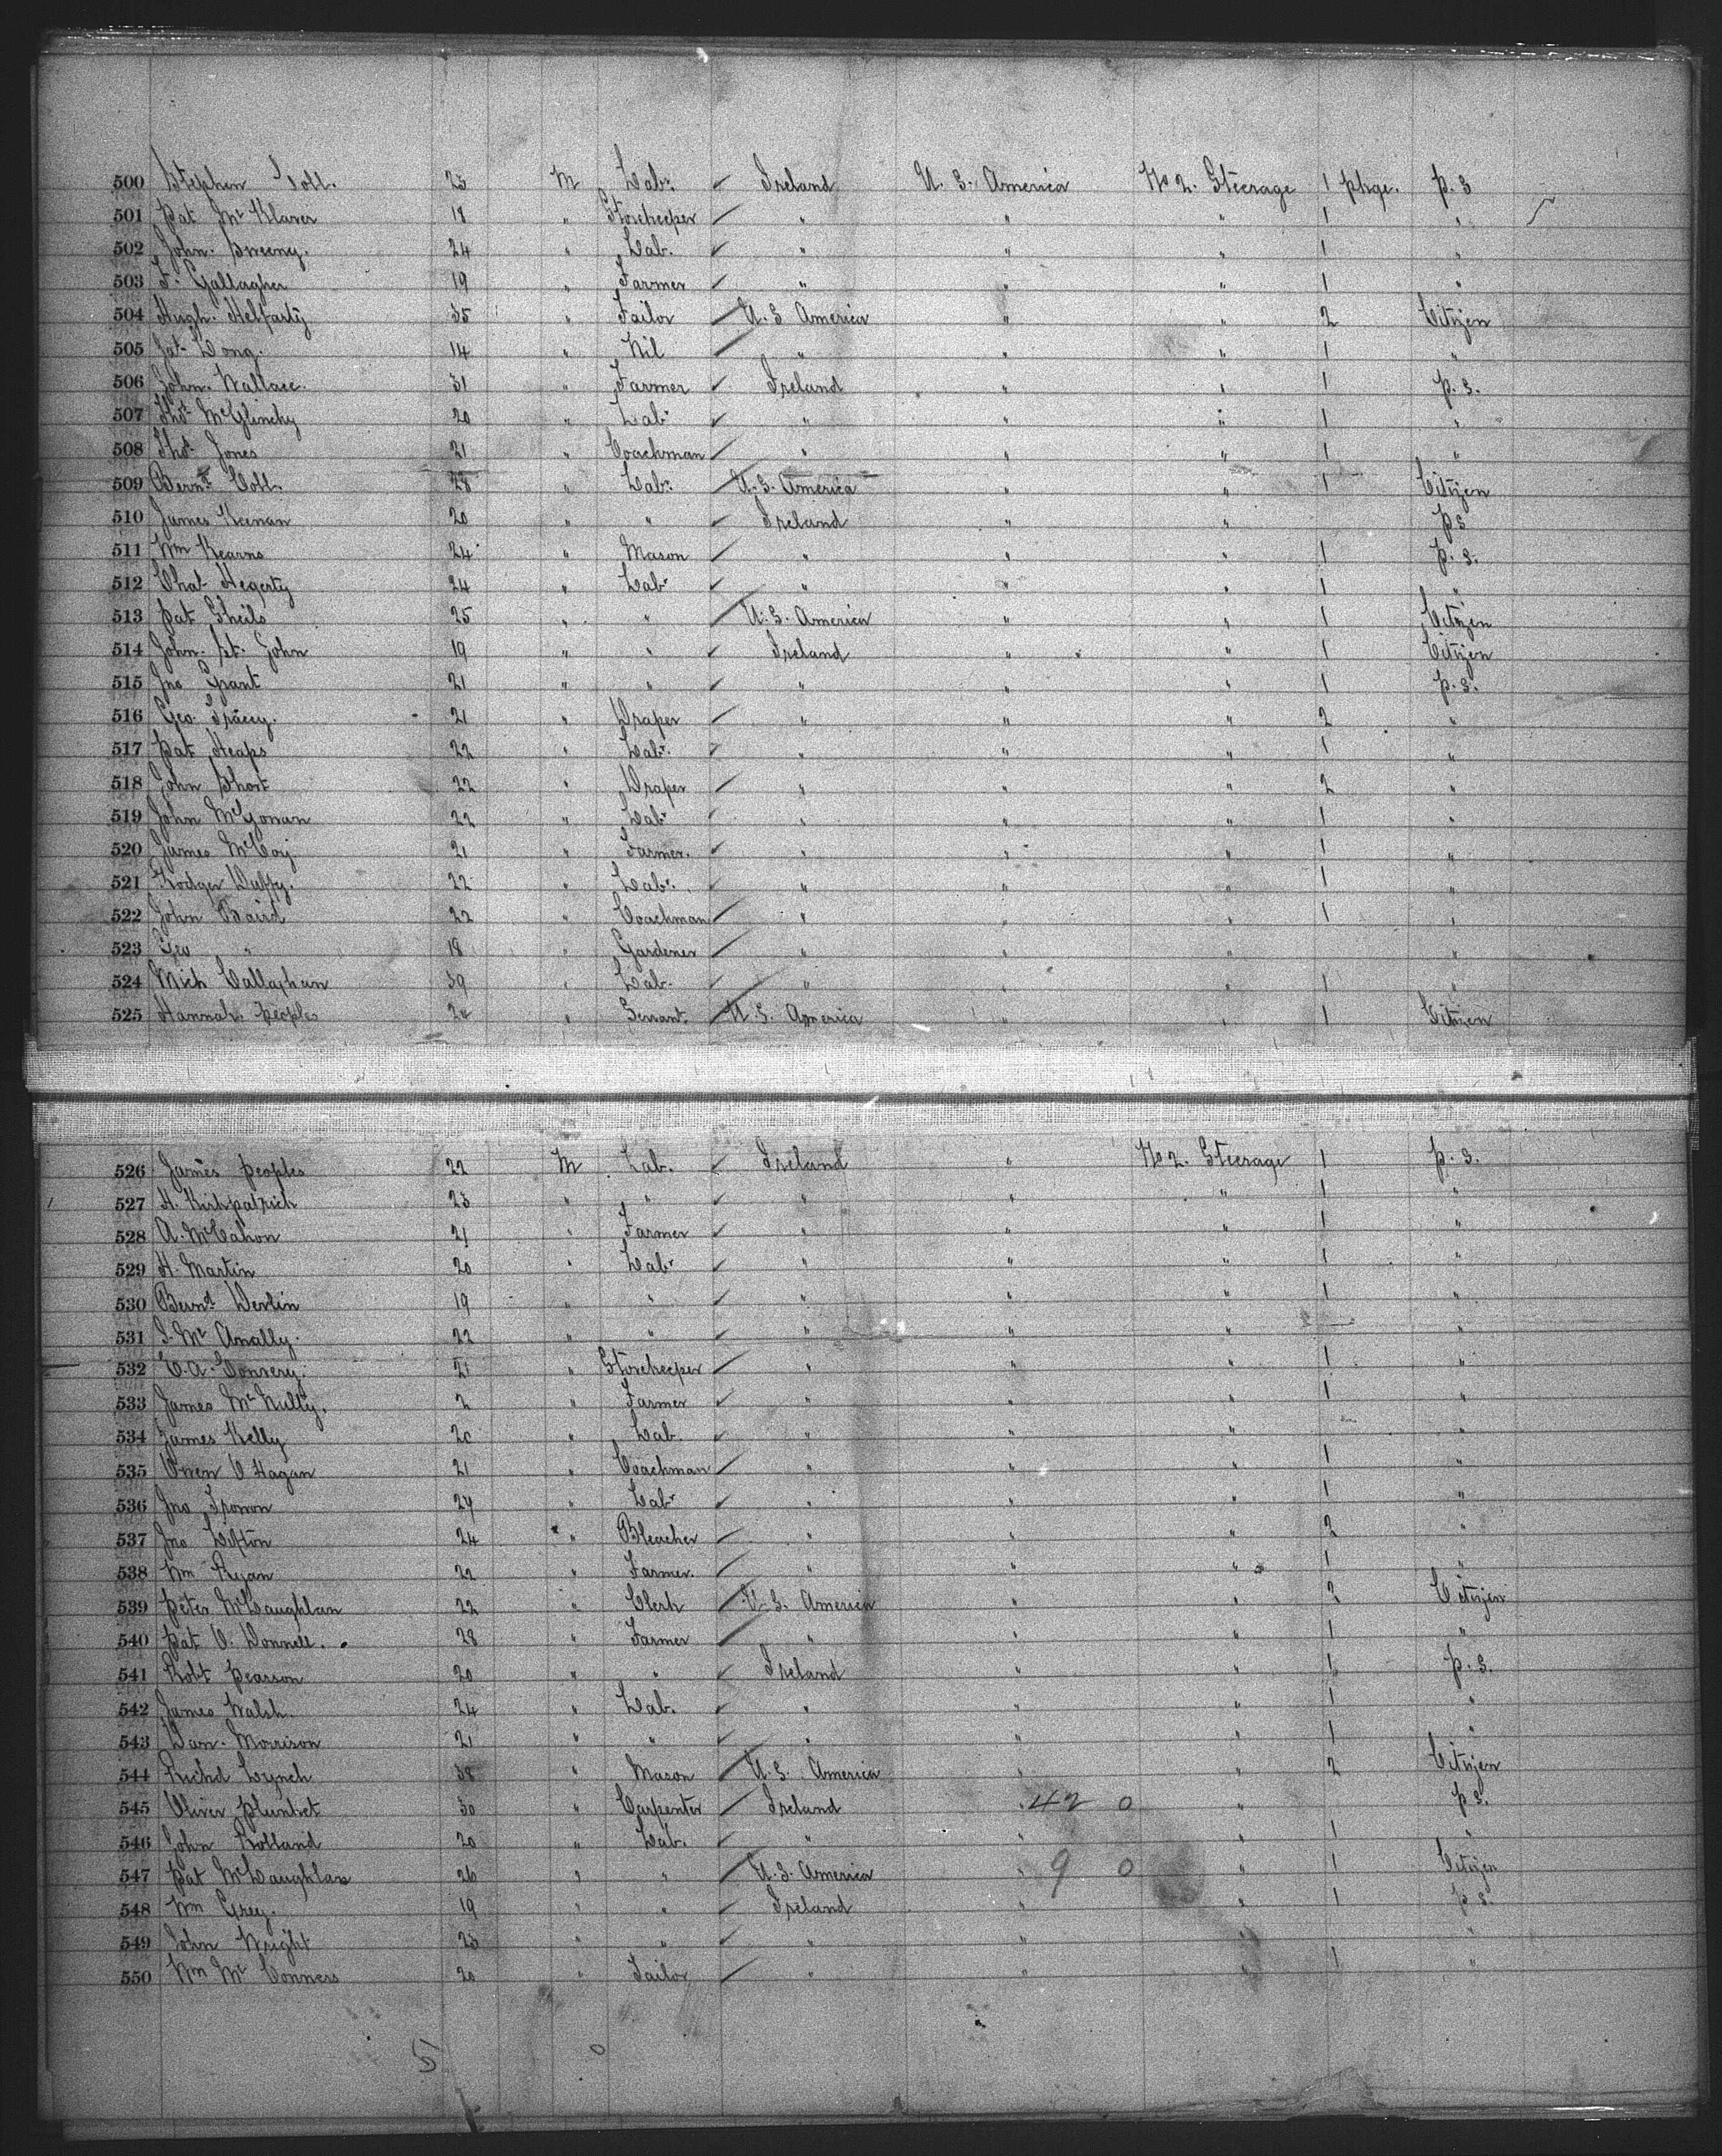 500 Stephen Coll. 23 M Labr. ✓ Ireland U. S. America No 2. Steerage 1 pkge. P. S
501 Pat Mc Klaver 18 " Storekeeper ✓ " " " 1 "
502 John. Sweeny. 24 " Lab. ✓ " " " 1 "
503 F. Gallagher 19 " Farmer ✓ " " " 1 "
504 Hugh. Helfarty 35 " Tailor ✓ U. S America " " 2 Citizen
505 Pat Long. 14 " Nil ✓ " " " 1 "
506 John. Wallace. 31 " Farmer ✓ Ireland " " 1 P. S.
507 Thos McGlinchy 20 " Labr ✓ " " " 1 "
508 Thos Jones 21 " Coachman ✓ " " " 1 "
509 Bernd. Coll. 28 " Labr. ✓ U. S. America " " 1 Citizen
510 James Keenan 20 " " ✓ Ireland " " P S
511 Wm Kearns 24 " Mason ✓ " " " 1 P. S.
512 Chas Hegerty 24 " Labr ✓ " " " 1 "
513 Pat Sheils 25 " " ✓ U. S. America " " 1 Citizen
514 John. St. John 19 " " ✓ Ireland " " 1 Citizen
515 Jno Grant 21 " " ✓ " " " 1 P. S.
516 Geo. Tracey. 21 " Draper ✓ " " " 2 "
517 Pat Heaps 22 " Labr. ✓ " " " 1 "
518 John Short 22 " Draper ✓ " " " 2 "
519 John McGowan 22 " Labr ✓ " " " 1 "
520 James McCoy 21 " Farmer. ✓ " " " 1 "
521 Rodger Duffy. 22 " Labr. ✓ " " " 1 "
522 John Baird 22 " Coachman ✓ " " " 1 "
523 Geo " 18 " Gardener ✓ " " " "
524 Mich Callaghan 39 " Lab. ✓ " " " 1 "
525 Hannah Peoples " Servant. ✓ U. S. America " " 1 Citizen
526 James Peoples 22 M Lab. ✓ Ireland " No 2. Steerage 1 P. S.
527 H. Kirkpatrick 23 " " ✓ " " " 1 "
528 A. McCahon 21 " Farmer ✓ " " " 1 "
529 H. Martin 20 " Labr ✓ " " " 1 "
530 Bernd. Devlin 19 " " ✓ " " " 1 "
531 Mc Anally. 22 " " ✓ " " " "
532 C. A. Convery. 21 " Storekeeper ✓ " " " 1 "
533 James Mc Nulty. 2 " Farmer ✓ " " " 1 "
534 James Kelly 20 " Lab. ✓ " " " "
535 Owen O Hagan 21 " Coachman ✓ " " " 1 "
536 Jno 24 " Labr ✓ " " " 1 "
537 Jno Lofton 24 " Bleacher ✓ " " " 2 "
538 Wm Ryan 22 " Farmer. ✓ " " " 1 "
539 Peter McLaughlan 22 " Clerk ✓ U. S. America " " 2 Citizen
540 Pat O. Donnell. 28 " Farmer ✓ " " " 1 "
541 Robt Pearson 20 " " ✓ Ireland " " 1 P. S.
542 James Walsh. 24 " Lab. ✓ " " " 1 "
543 Dan. Morrison 21 " " ✓ " " " 1 "
544 Richd Lynch 38 " Mason ✓ U. S. America " " 2 Citizen
545 Oliver Plunket 30 " Carpenter ✓ Ireland " 42 0 " P S.
546 John Rolland 20 " Lab. ✓ " " " 1 "
547 Pat McLaughlan 26 " " ✓ U. S. America " 9 0 " 1 Citizen
548 Wm Grey. 19 " " ✓ Ireland " " 1 P S.
549 John Wright 23 " " ✓ " " " "
550 Wm Mc Conners 20 " Tailor ✓ " " " 1 "
5 0